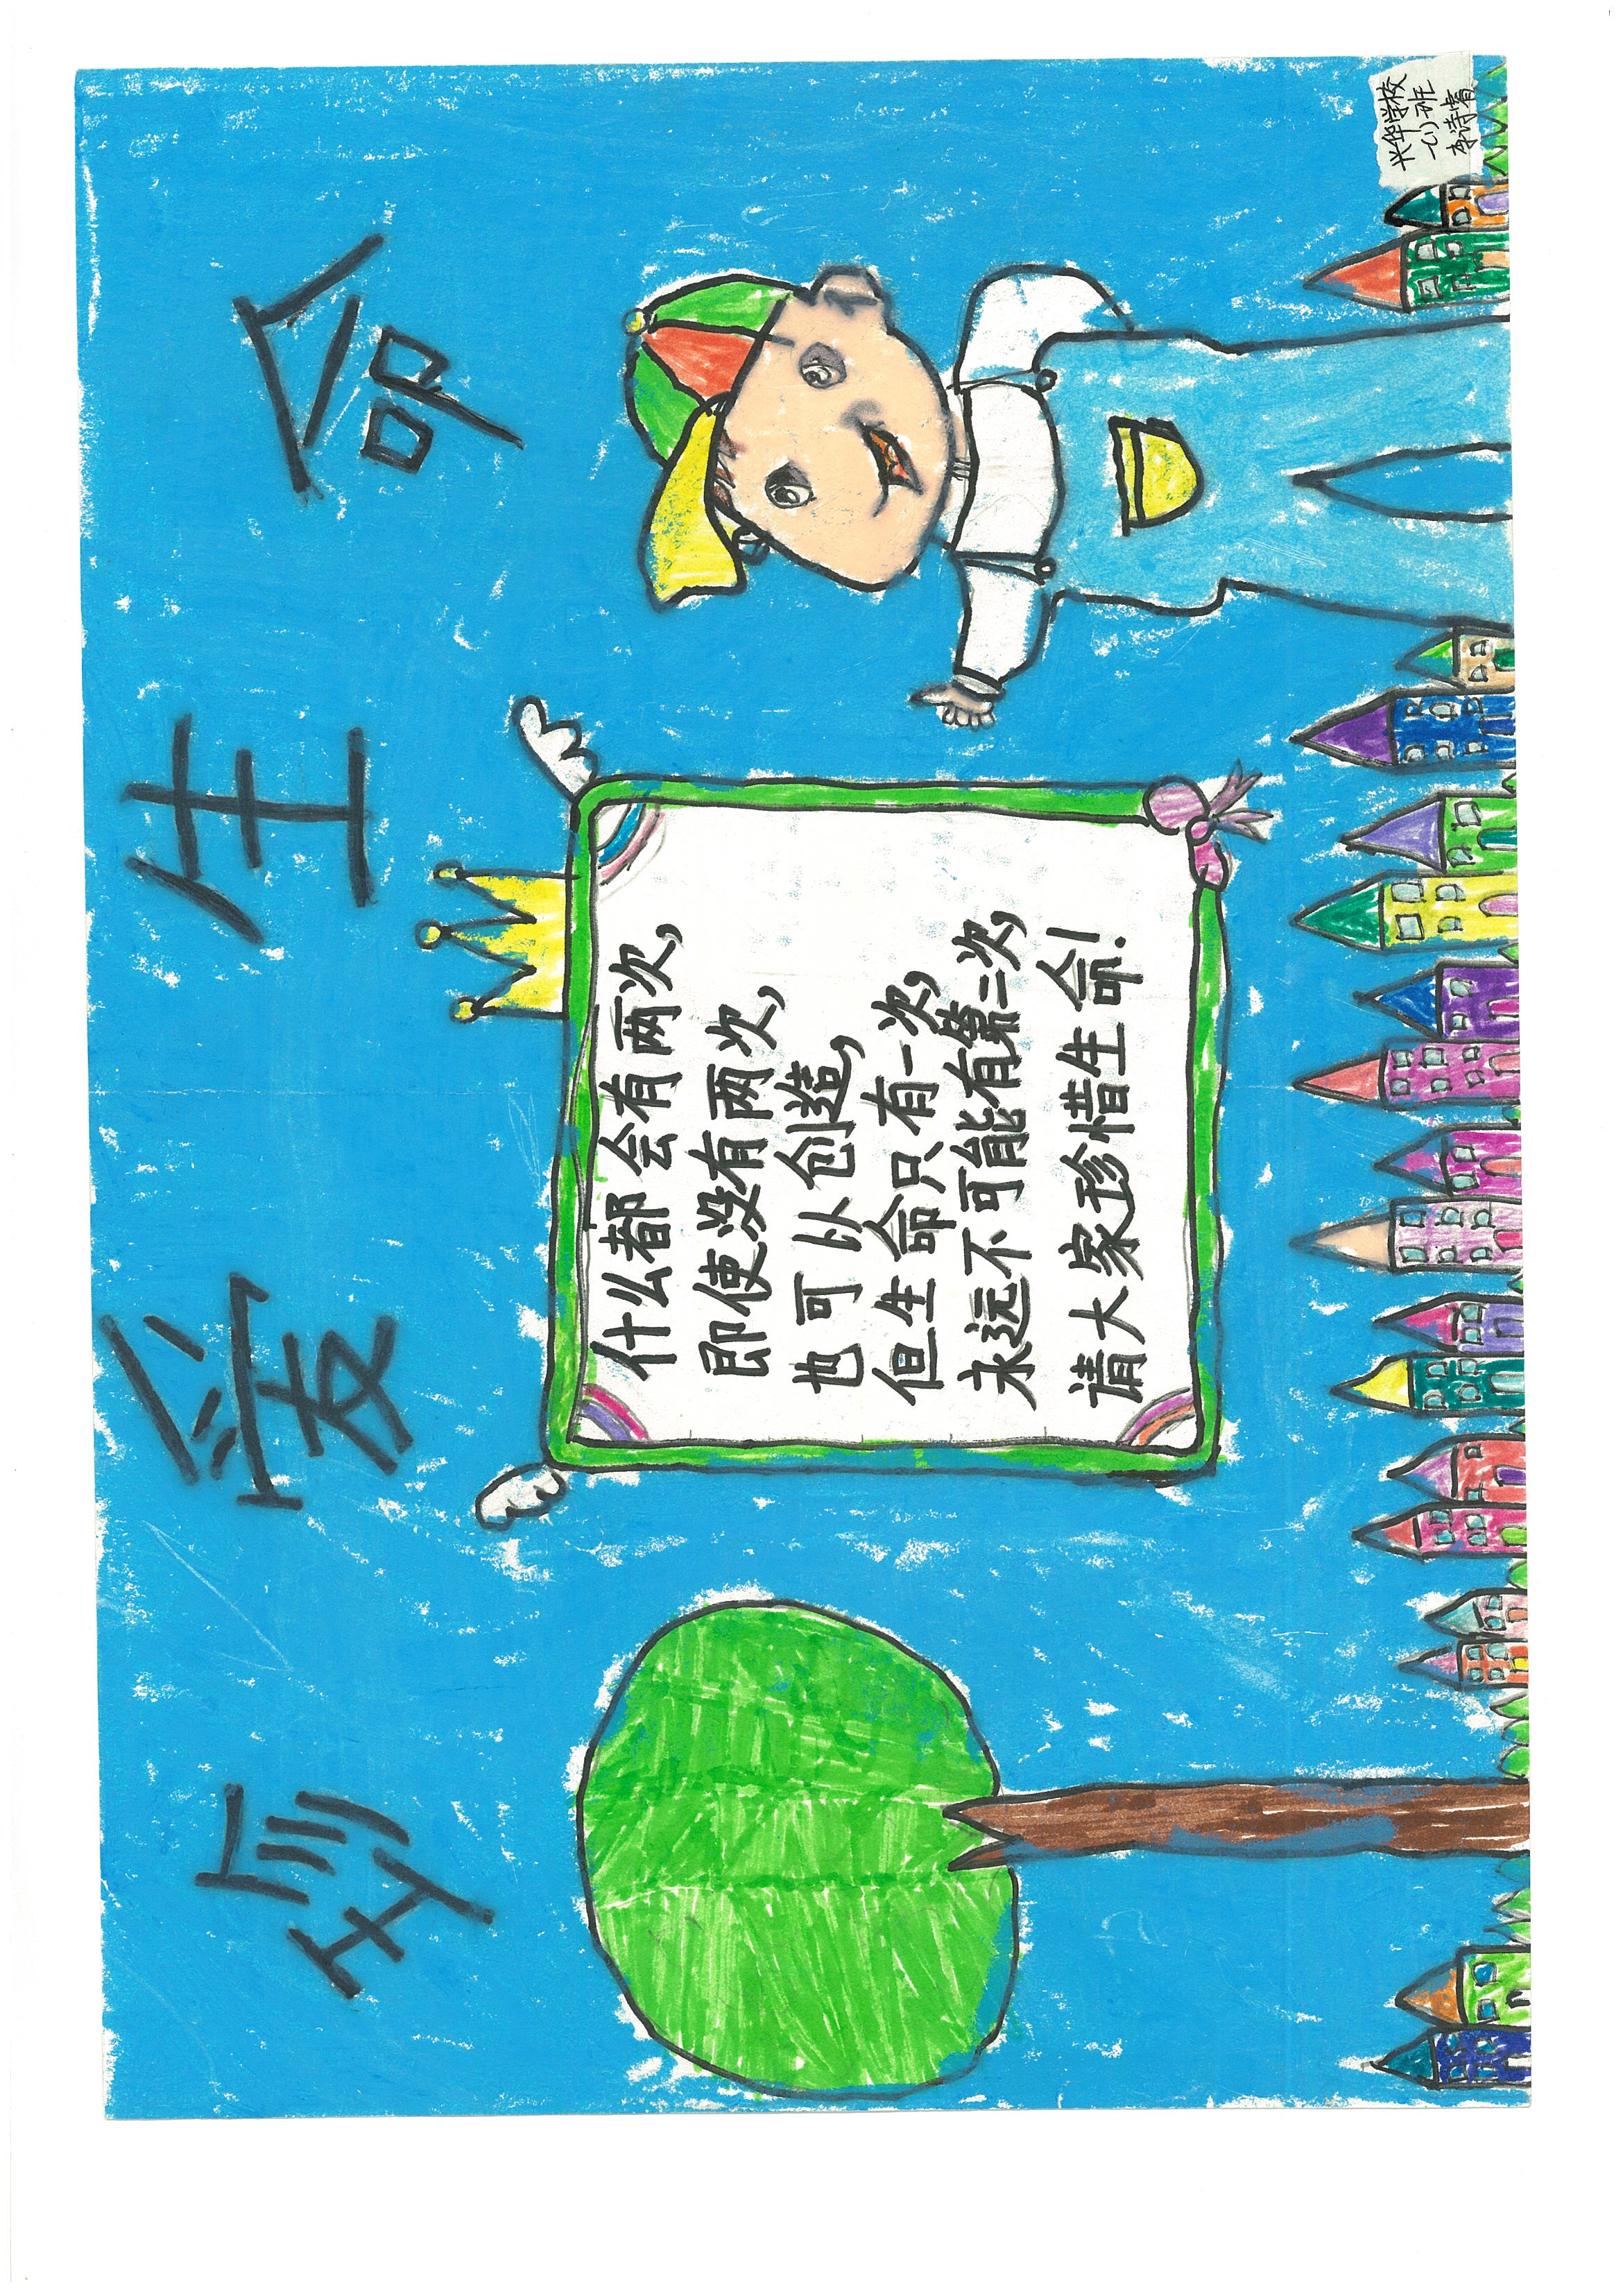 珍爱生命
什么都会有两次，
即使没有两次，
也可以创造，
但生命只有一次，
永远不可能有第二次，
请大家珍惜生命！
兴华学校
七(1)班
李诗睿